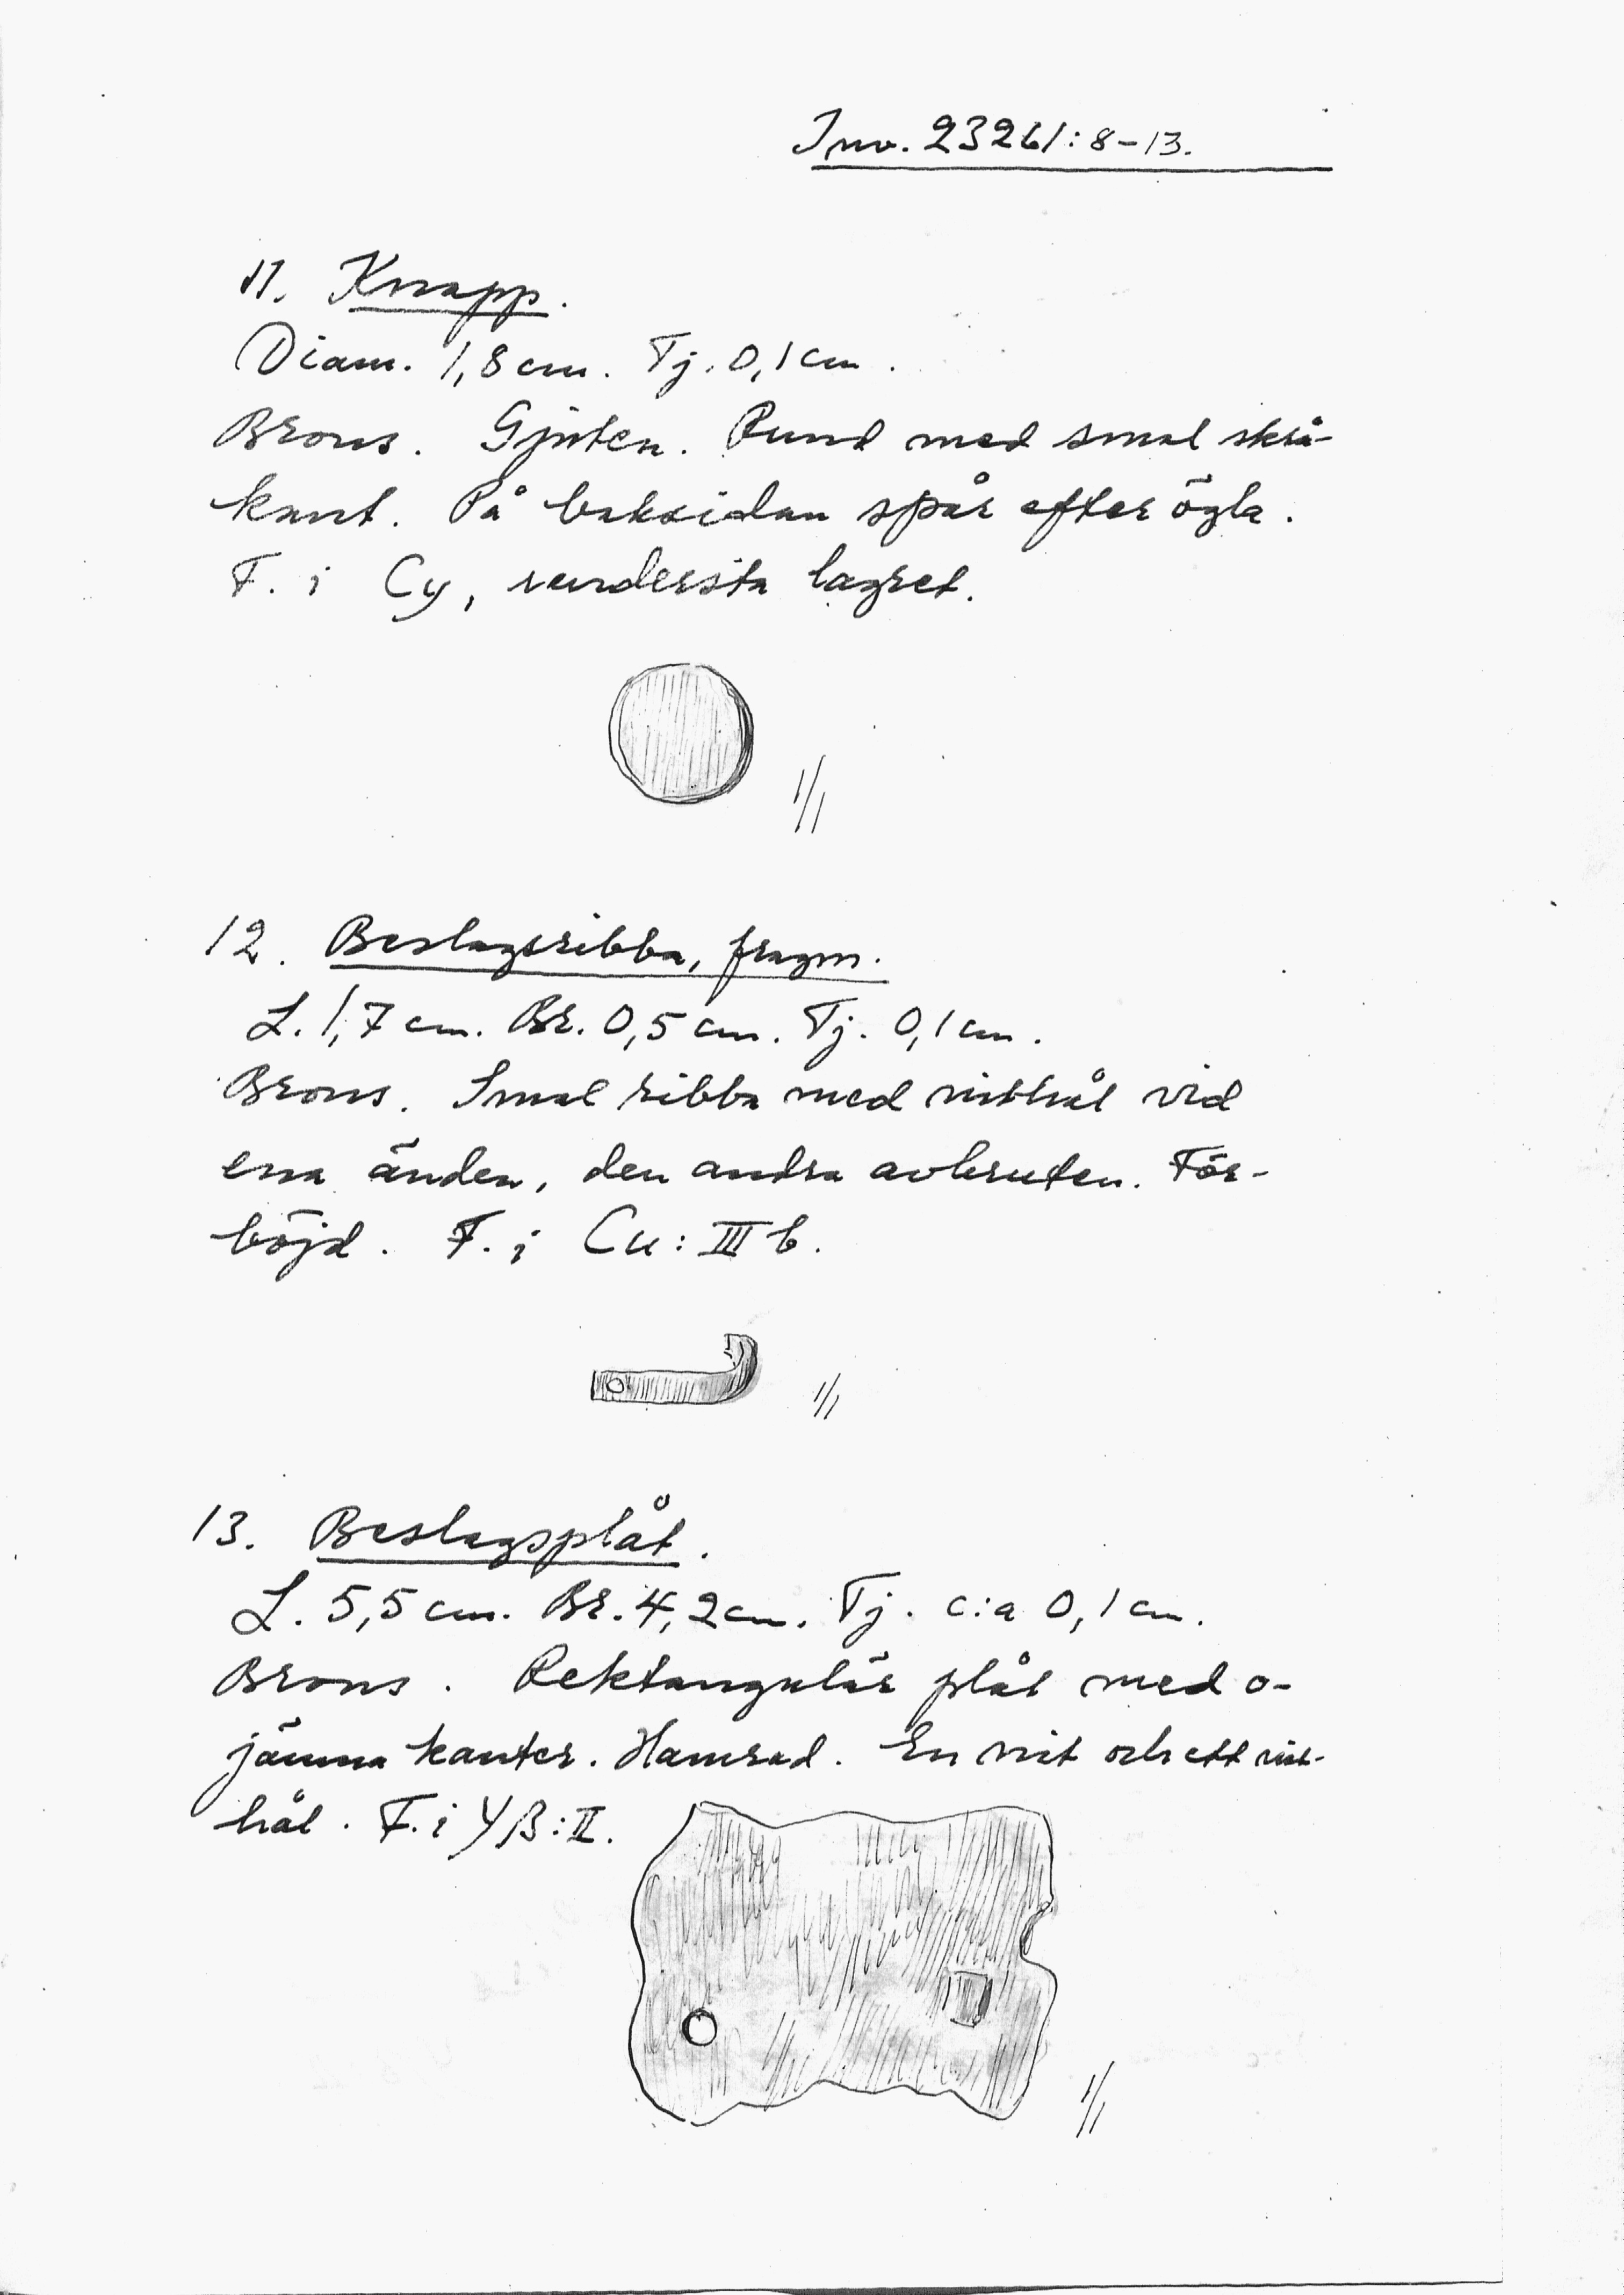 Inv. 23261:8-13.
11. Knapp.
Diam. 1,8 cm. Tj. 0,1 cm.
Brons. Gjuten. Rund med smal skrå-
kant. På baksidan spår efter ögla.
F. i Cy, understa lagret.
1/1
12. Beslagsribba, fragm.
L. 1,7 cm. Br. 0,5 cm. Tj. 0,1 cm.
Brons. Smal ribba med nithål vid
ena änden, den andra avbruten. För-
böjd. F. i Cu: III b.
1/1
13. Beslagsplåt.
L. 5,5 cm. Br. 4,2 cm. Tj. c:a 0,1 cm.
Brons. Rektangulär plåt med o-
jämna kanter. Hamrad. En nit och ett nit-
hål. F. i Yβ: II.
1/1